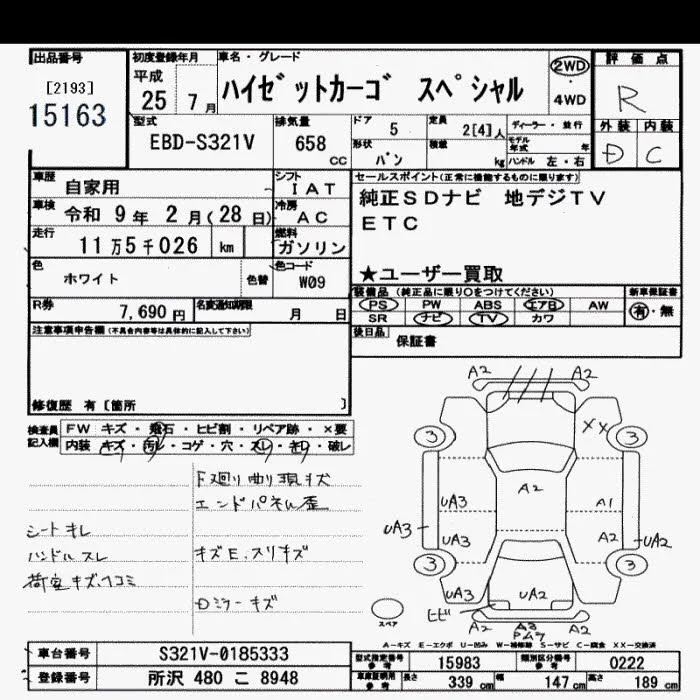 出品番号 [2193] 15163
初度登録年月 平成 25 7月
車名・グレード ハイゼットカーゴ スペシャル
2WD・4WD
評価点 R
外装 内装
D C
型式 EBD-S321V
排気量 658 CC
ドア 5
定員 2[4]人
ディーラー・並行
形状 バン
積載 kg
モデル年式 年
ハンドル 左・右
車歴 自家用
シフト IAT
車検 令和 9年 2月(28日)
冷房 AC
走行 11万5千026 km
燃料 ガソリン
色 ホワイト
色替
色コード W09
R券 7,690円
名変通知期限 月 日
セールスポイント(正常に機能するものに限ります)
純正SDナビ 地デジTV
ETC
★ユーザー買取
装備品(純正品に限り○をつけてください)
新車保証書
PS PW ABS エアB AW
有・無
SR ナビ TV カワ
後日品 保証書
注意事項申告欄(不具合内容等は具体的に記入して下さい)
修復歴 有 [箇所 ]
検査員記入欄
FW キズ・飛石・ヒビ割・リペア跡・×要
内装 キズ・汚レ・コゲ・穴・スレ・キレ・破レ
シートキレ
ハンドルスレ
荷室キズヘコミ
下廻り曲り現キズ
エンドパネル歪
キズE,スリキズ
Dミラーキズ
A2 A2
XX
3 3
A2
UA3 A1
UA3 UA3 A2 UA2
3 3
UA3 UA2
ヒビ
A2 A3 A2
スペア
A-キズ E-エクボ U-凹み W-補修跡 S-サビ C-腐食 XX-交換済
車台番号 S321V-0185333
登録番号 所沢 480 こ 8948
型式指定番号 参考 15983
類別区分番号 参考 0222
車庫証明用 参考 長さ 339cm 幅 147cm 高さ 189cm